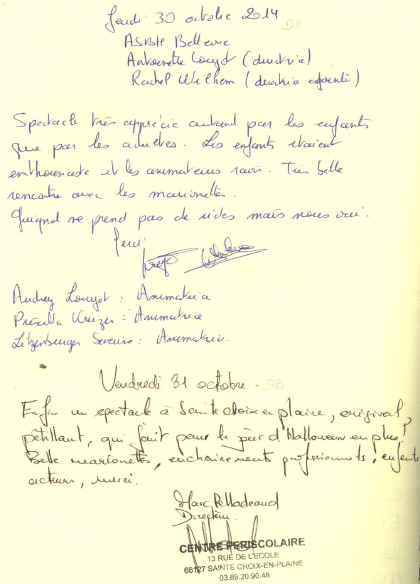 Jeudi 30 octobre 2014
ASBH Bellevue
Antoinette Longot (directrice)
Rachel Wilhem (directrice adjointe)
Spectacle très apprécié autant par les enfants
que par les adultes. Les enfants étaient
enthousiaste et les animateurs ravis. Très belle
rencontre avec les marionettes.
Guignol ne prend pas de rides mais nous oui.
Merci
Audrey Longot : Animatrice
Priscilla Kreizer : Animatrice
Litzenburger : Animatrice.
Vendredi 31 octobre.
Enfin un spectacle à Sainte Croix en plaine, original,
pétillant, qui fait peur le jour d'Halloween en plus!
Belle marionettes, enchainements professionnels, enfants
acteurs, merci.
Marc
Directeur
CENTRE PERISCOLAIRE
13 RUE DE L'ECOLE
68127 SAINTE CROIX-EN-PLAINE
03.89.20.90.48